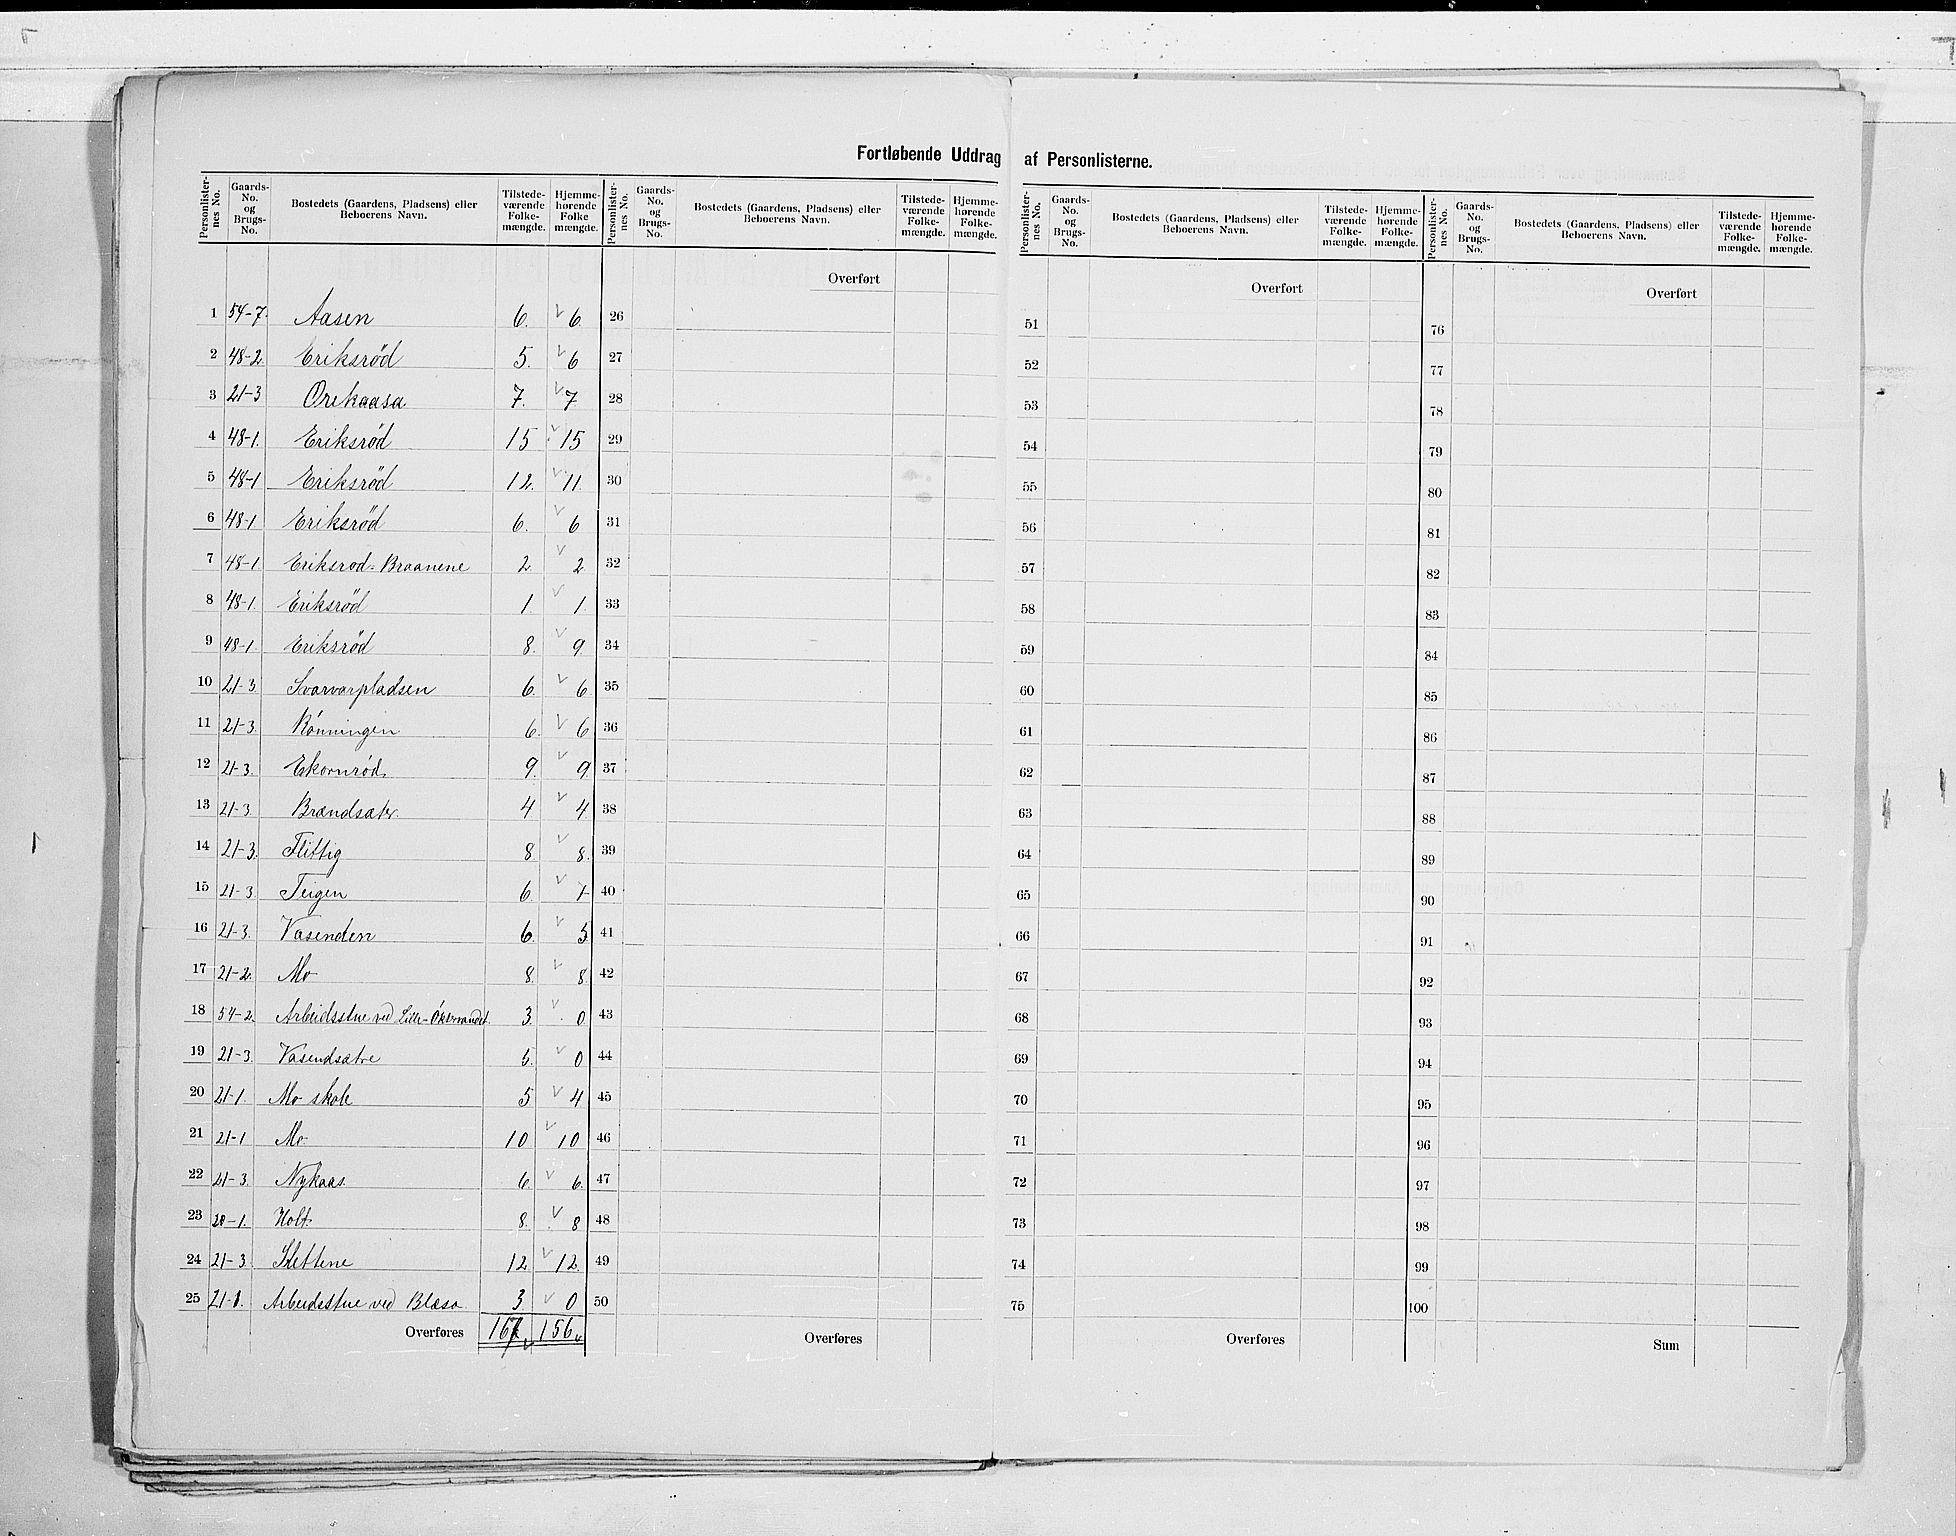 Fortløbende Uddrag af Personlisterne.
Personlister-nes No. Gaards-No. og Brugs-No. Bostedets (Gaardens, Pladsens) eller Beboerens Navn. Tilstede-værende Folke-mængde. Hjemme-hørende Folke mængde.
Personlister-nes No. Gaards-No. og Brugs-No. Bostedets (Gaardens, Pladsens) eller Beboerens Navn. Tilstede-værende Folke-mængde. Hjemme-hørende Folke-mængde.
Personlister-nes No. Gaards-No. og Brugs-No. Bostedets (Gaardens, Pladsens) eller Beboerens Navn. Tilstede-værende Folke-mængde. Hjemme-hørende Folke-mængde.
Personlister-nes No. Gaards-No. og Brugs-No. Bostedets (Gaardens, Pladsens) eller Beboerens Navn. Tilstede-værende Folke-mængde. Hjemme-hørende Folke-mængde.
Overført Overført Overført
1 54-7. Aasen 6. 6 26 51 76
2 48-2. Eriksröd 5. 6 27 52 77
3 21-3 Orekaasa 7. 7 28 53 78
4 48-1. Eriksröd 15 15 29 54 79
5 48-1 Eriksröd 12. 11. 30 55 80
6 48-1 Eriksröd 6. 6 31 56 81
7 48-1 Eriksrod-Braanene 2 2 32 57 82
8 48-1. Eriksröd 1. 1. 33 58 83
9 48-1. Eriksröd 8. 9. 34 59 84
10 21-3 Svarvarpladsen 6. 6 35 60 85
11 21-3. Rönningen 6. 6 36 61 86
12 21-3. Ekornrød. 9. 9 37 62 87
13 21-3 Brændsæter. 4 4 38 63 88
14 21-3. Flittig 8. 8. 39 64 89
15 21-3. Teigen 6. 7 40 65 90
16 21-3. Vasenden 6. 5 41 66 91
17 21-2. Mo 8. 8 42 67 92
18 54-2. Arbeidsstue ved Lille-Öktervandet. 3. 0 43 68 93
19 21-3. Vasendsætre 5. 0 44 69 94
20 21-1. Mo skole 5 4 45 70 95
21 21-1 Mo 10 10 46 71 96
22 21-3. Nykaas. 6. 6. 47 72 97
23 20-1. Holt. 8. 8 48 73 98
24 21-3. Slettene 12 12. 49 74 99
25 21-1. Arbeidsstue ved Blæsa. 3 0 50 75 100
Overføres 167 156 Overføres Overføres Sum